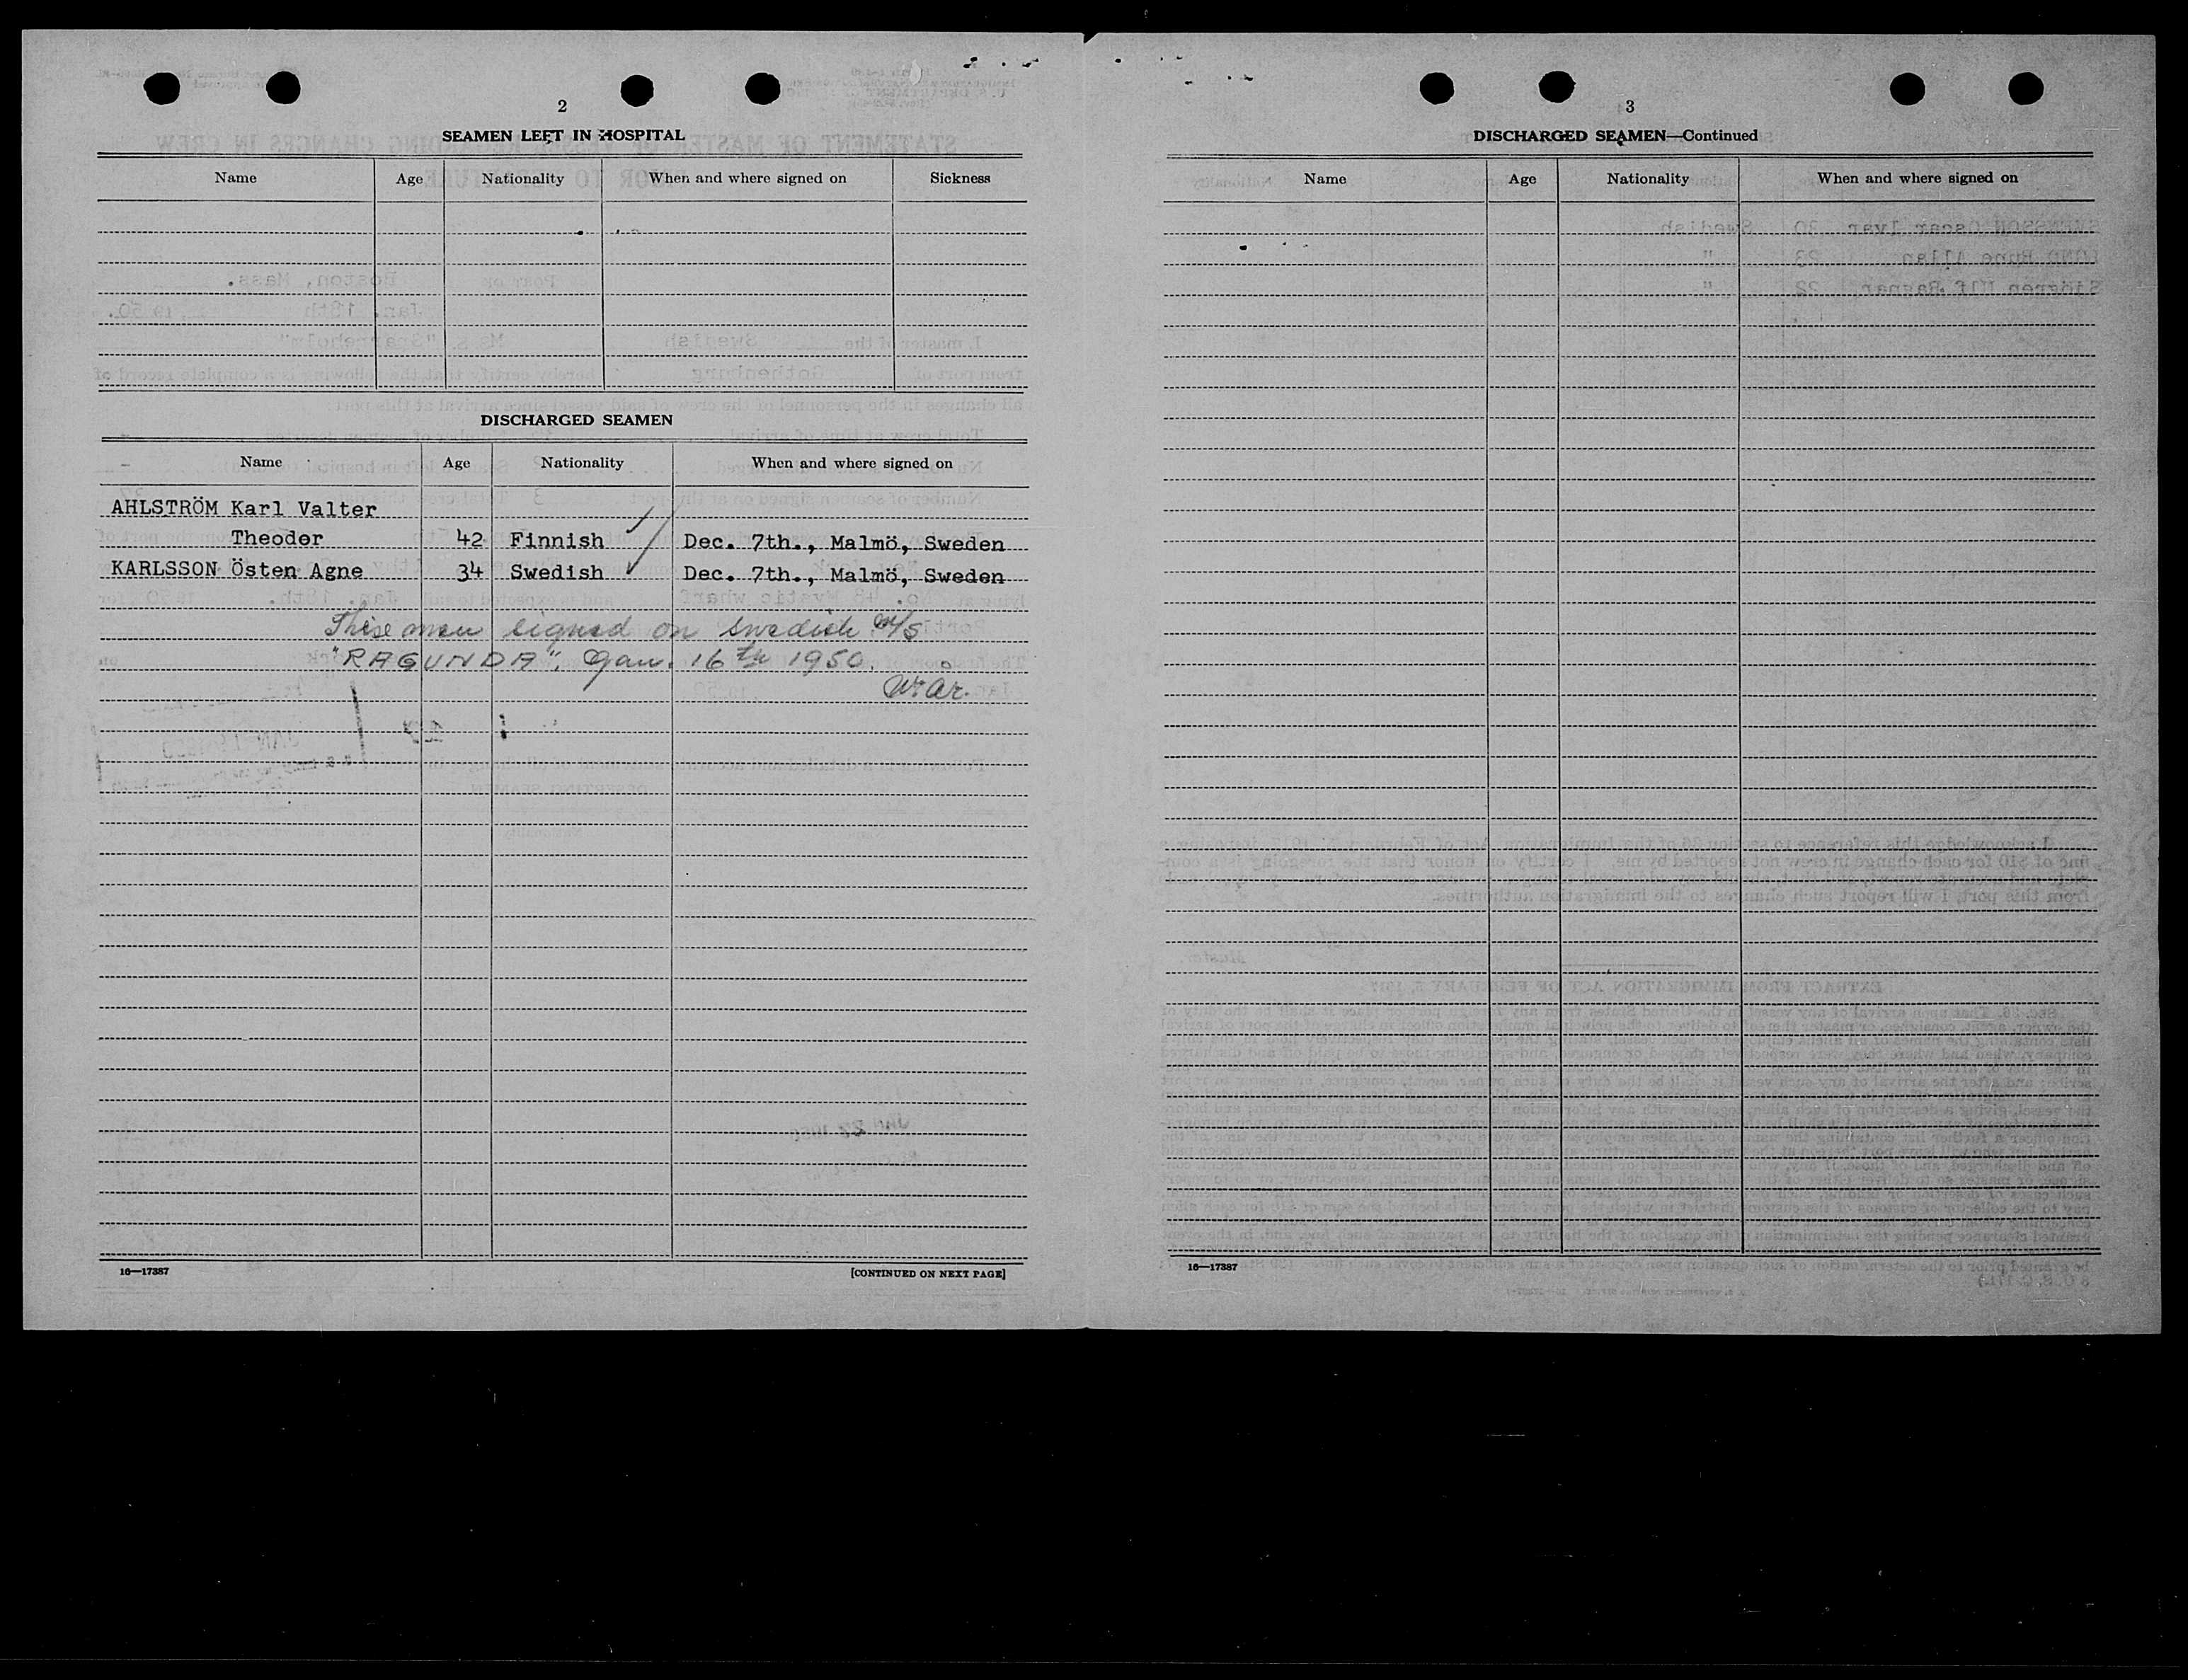 2
SEAMEN LEFT IN HOSPITAL
Name Age Nationality When and where signed on Sickness
DISCHARGED SEAMEN
Name Age Nationality When and where signed on
AHLSTRÖM Karl Valter
Theodor 42 Finnish Dec. 7th., Malmö, Sweden
KARLSSON Östen Agne 34 Swedish Dec. 7th., Malmö, Sweden
These men signed on Swedish M/S
"RAGUNDA", Jan. 16th 1950.
16—17387 [CONTINUED ON NEXT PAGE]
3
DISCHARGED SEAMEN—Continued
Name Age Nationality When and where signed on
16—17387